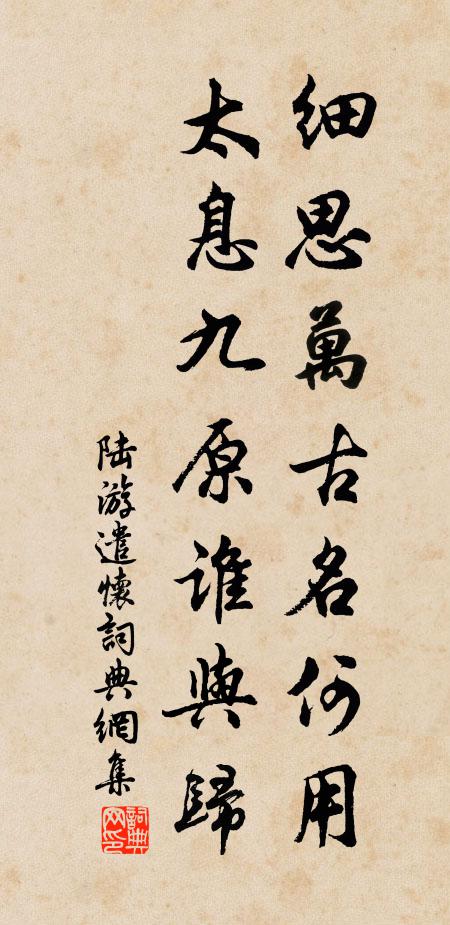 細思萬古名何用
太息九原誰與歸
陸游遣懷詞典網集
詞典網印